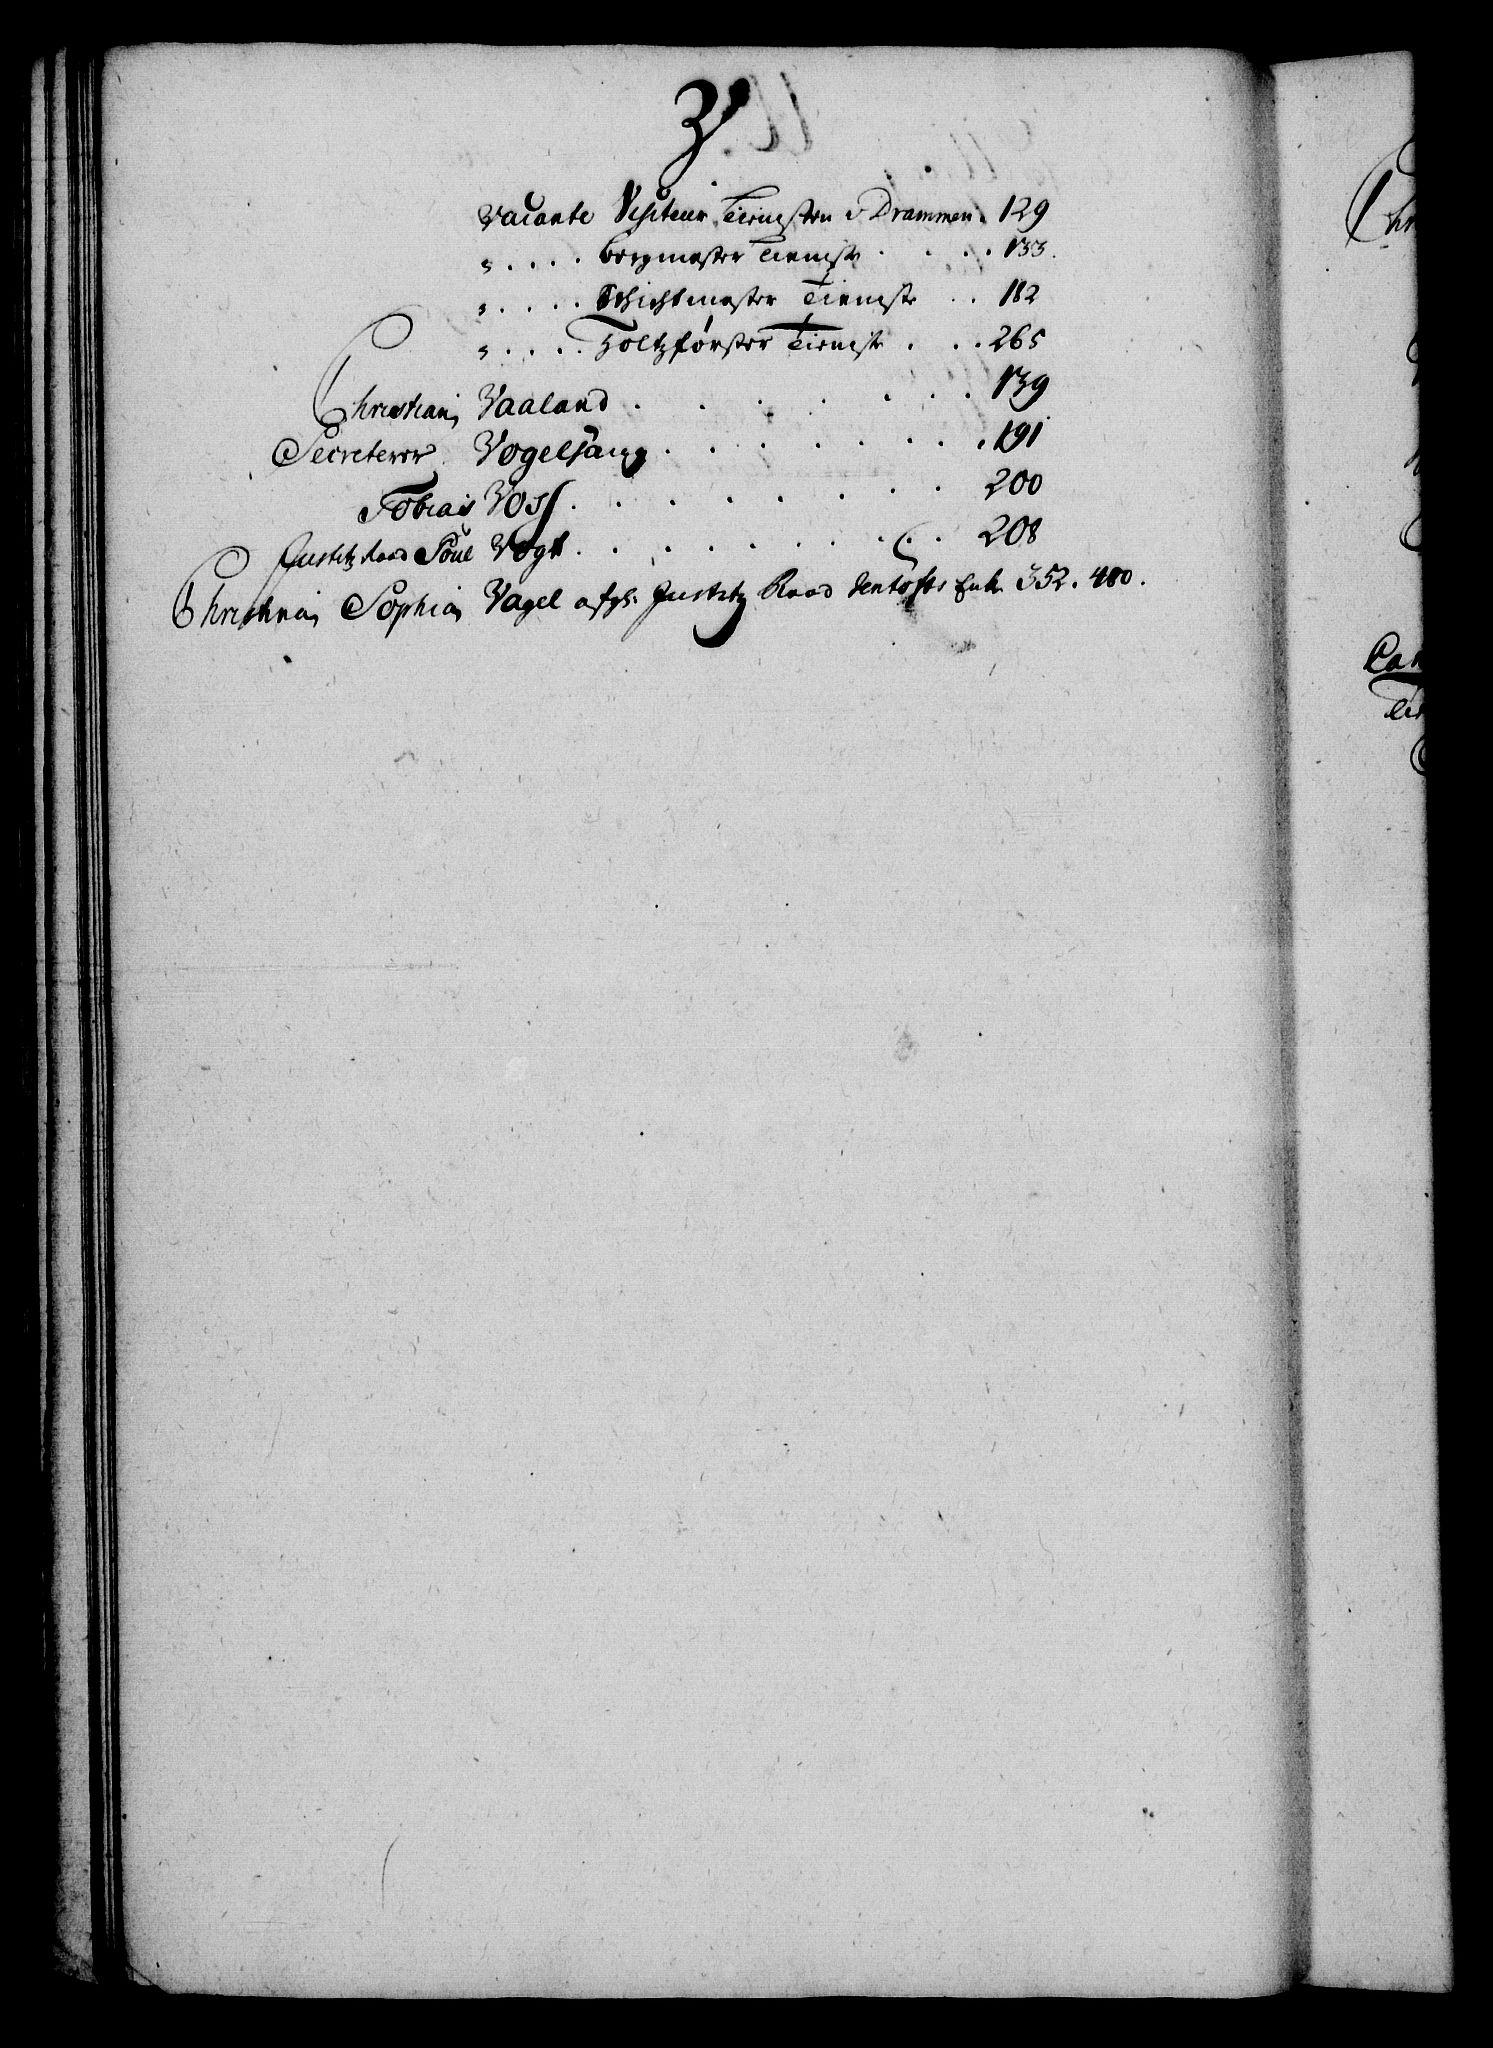 V
Vacante Visiteur Tienesten i Drammen. 129
" . . . . Bergmester Tieneste . . . . 133.
" . . . . Schichtmester Tieneste . . 182
" . . . . Holtzförster Tieneste . . . 265
Christian Vaaland . . . . . . 139
Secreterer Vogelsang . . . . . . 191
Tobias Voss . . . . . . . 200
Justitz Raad Poul Vogt . . . . . . . 208
Christina Sophia Vagel afgl. Justitz Raad Enke 352. 480.